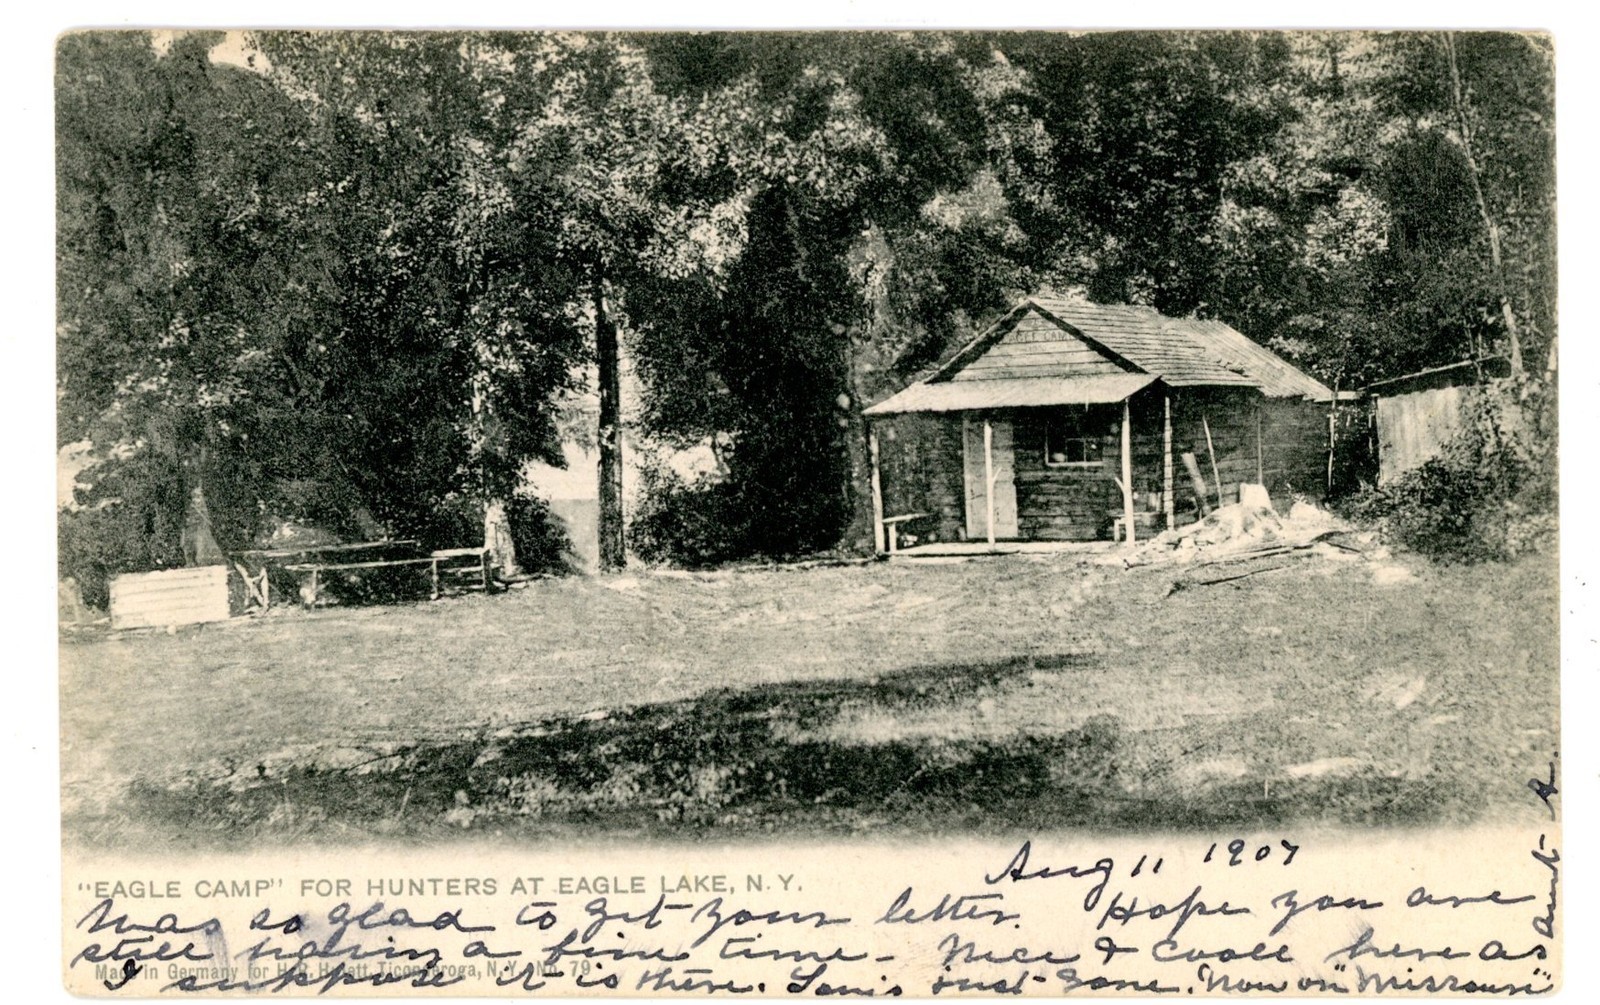 CAMP
Aug 11 1907
"EAGLE CAMP" FOR HUNTERS AT EAGLE LAKE, N.Y.
Was so glad to get your letter. Hope you are
still having a fine time - Nice & cool here as
Made in Germany for H. R. Ticonderoga, N.Y. No. 79
I suppose it is there. Louis just gone. Now on "Missouri"
Aunt A.